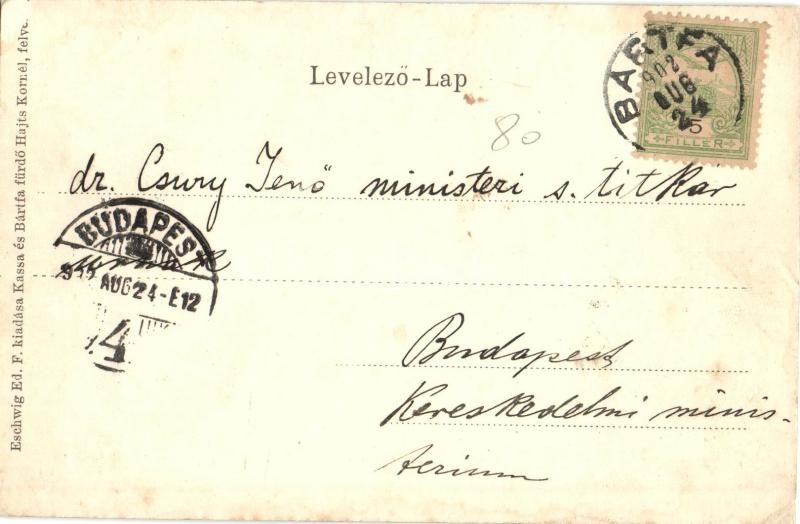 Levelező-Lap
BÁRTFA
902
AUG
24
5
FILLÉR
80
dr. Csury Jenő ministeri s. titkár
BUDAPEST
AUG 24-E12
4
Budapest
Kereskedelmi minis-
terium
Eschwig Ed. F. kiadása Kassa és Bártfa fürdő Hajts Kornél, felve.